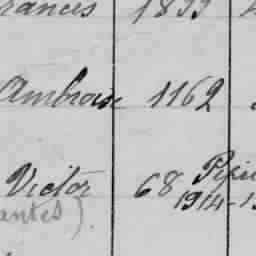 rancis 1833
Ambroise 1162
Victor 68
1914-1
antes)